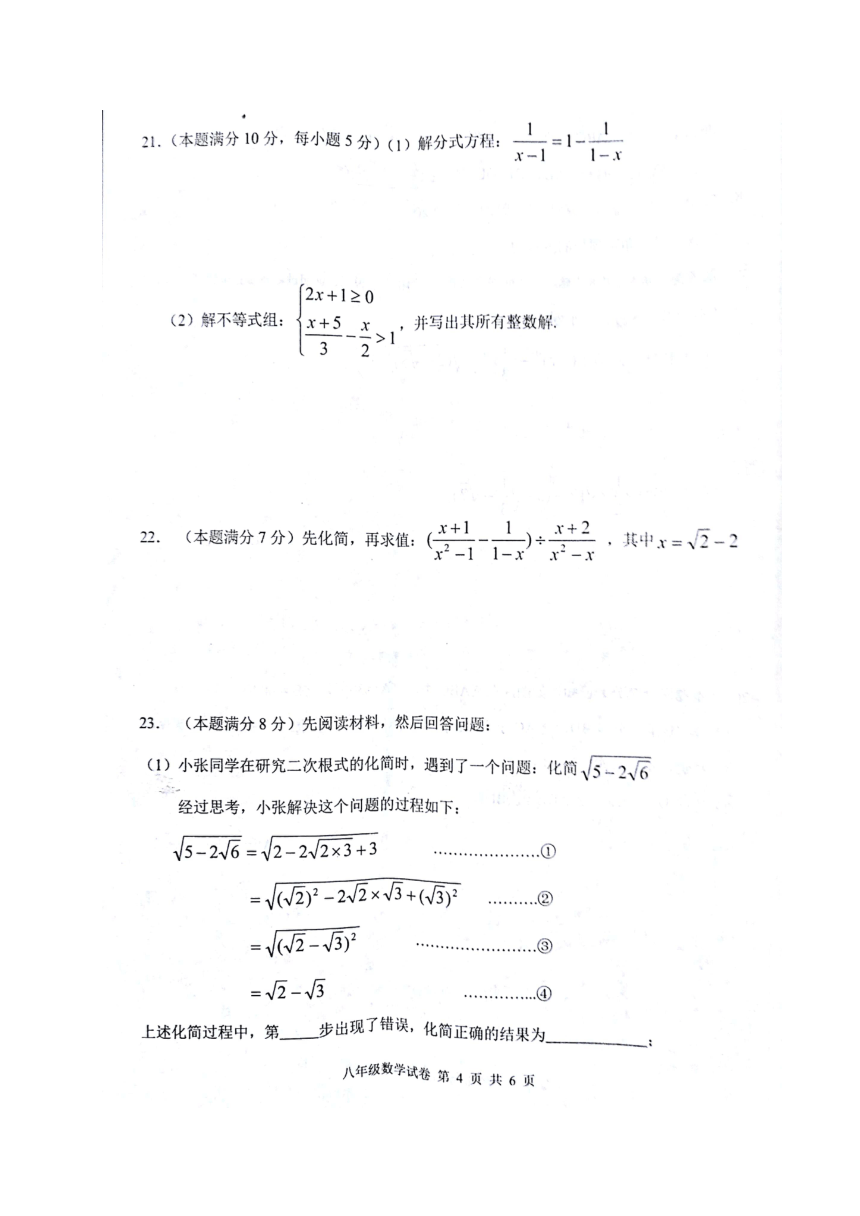 21.（本题满分 10 分，每小题 5 分）(1）解分式方程：$\frac{1}{x-1}=1-\frac{1}{1-x}$
（2）解不等式组：$\begin{cases}2x+1\geq 0\\ \frac{x+5}{3}-\frac{x}{2}>1\end{cases}$，并写出其所有整数解.
22. （本题满分 7 分）先化简，再求值：$(\frac{x+1}{x^2-1}-\frac{1}{1-x})\div\frac{x+2}{x^2-x}$，其中 $x=\sqrt{2}-2$
23. （本题满分 8 分）先阅读材料，然后回答问题：
（1）小张同学在研究二次根式的化简时，遇到了一个问题：化简 $\sqrt{5-2\sqrt{6}}$
经过思考，小张解决这个问题的过程如下：
$\sqrt{5-2\sqrt{6}}=\sqrt{2-2\sqrt{2\times 3}+3}$ …………………①
$=\sqrt{(\sqrt{2})^2-2\sqrt{2}\times\sqrt{3}+(\sqrt{3})^2}$ ……….②
$=\sqrt{(\sqrt{2}-\sqrt{3})^2}$ …………………….③
$=\sqrt{2}-\sqrt{3}$ …………...④
上述化简过程中，第____步出现了错误，化简正确的结果为___________；
八年级数学试卷 第 4 页 共 6 页